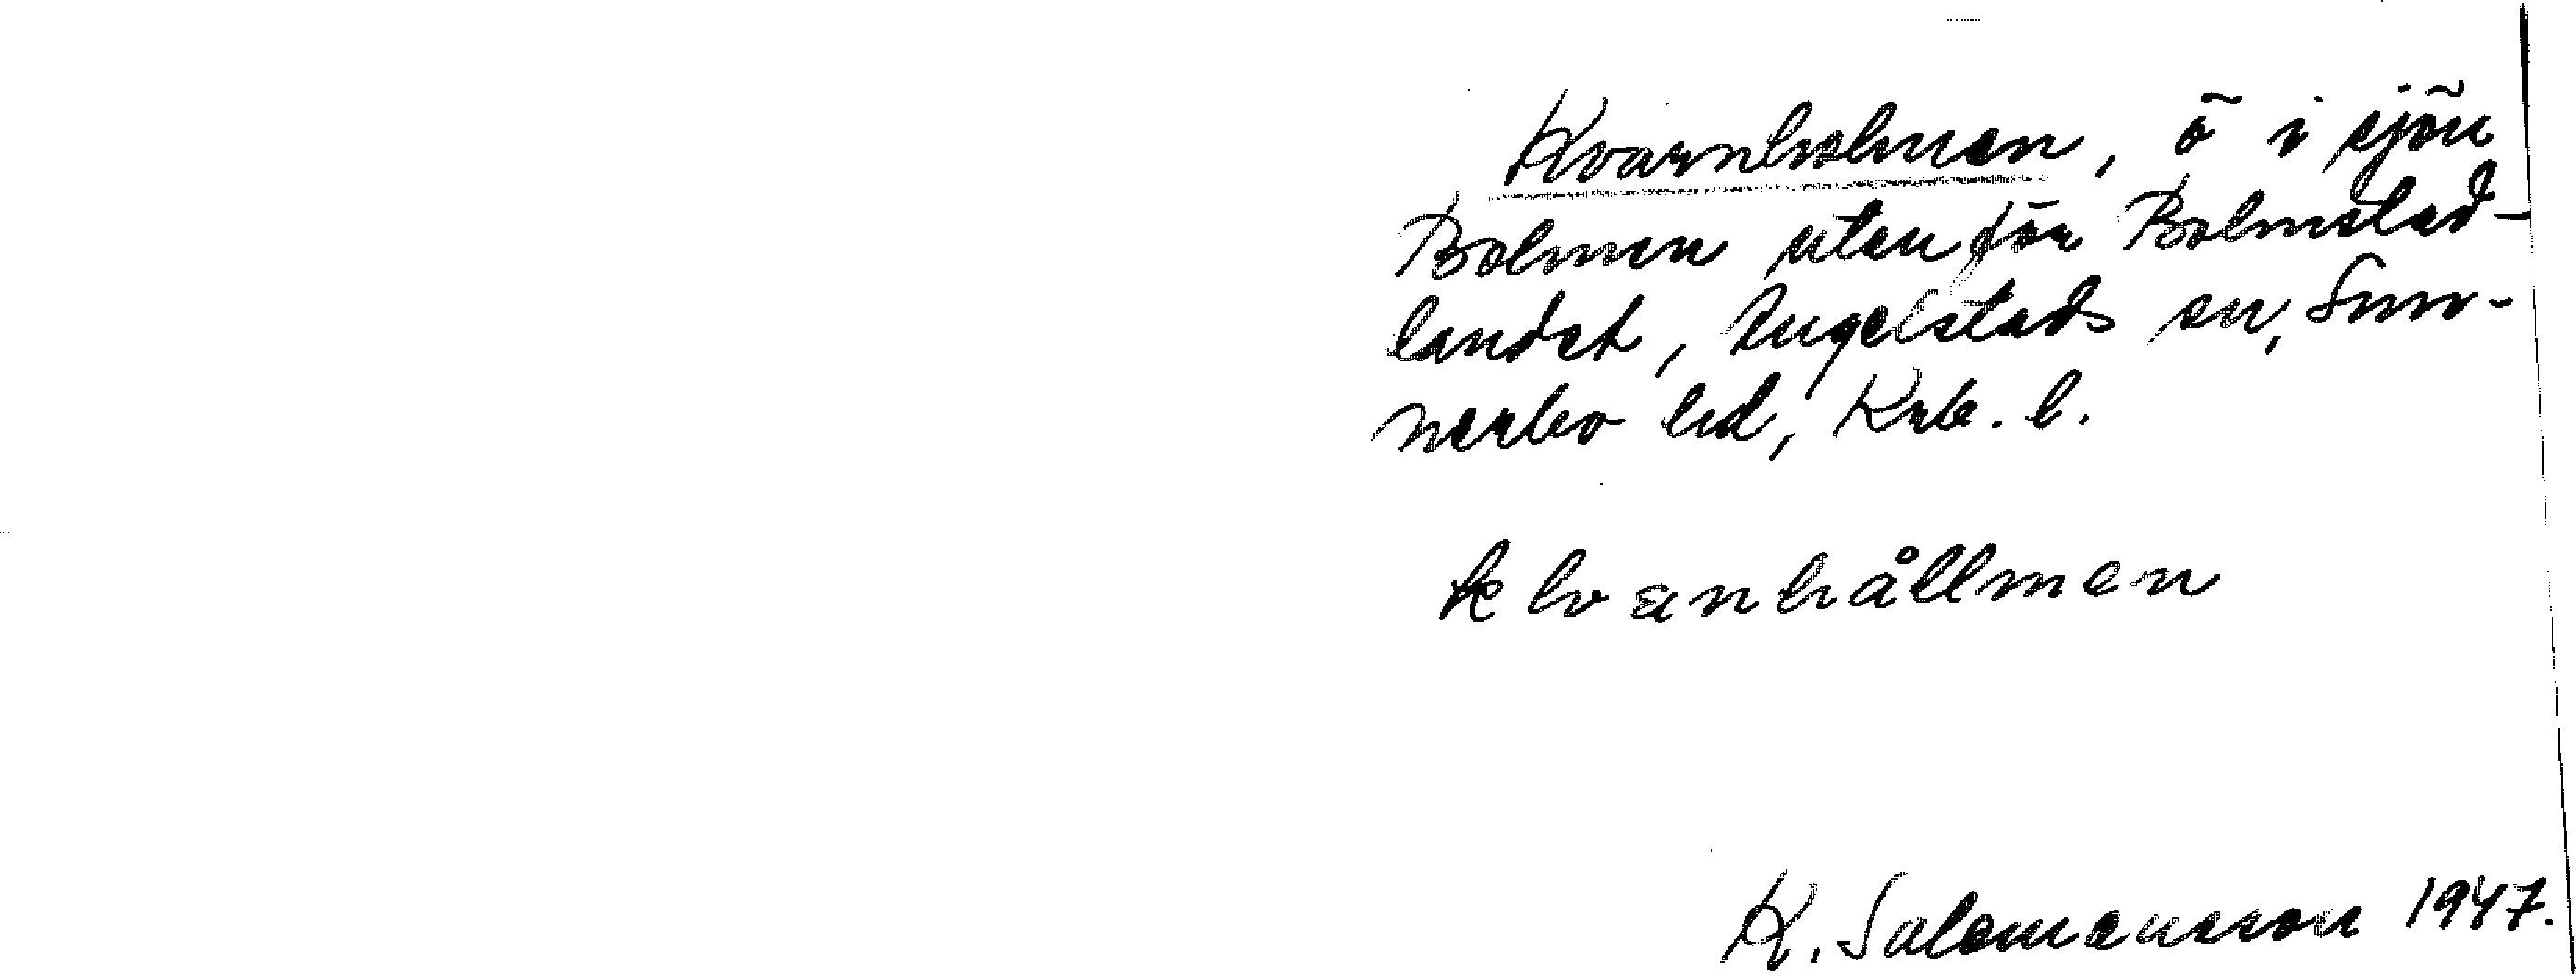 Kvarnholmen, ö i sjön
Bolmen utanför Bolmstad-
landet, Angelstads sn, Sun-
nerbo hd, Krb. l.
K. Salomonsson 1947.